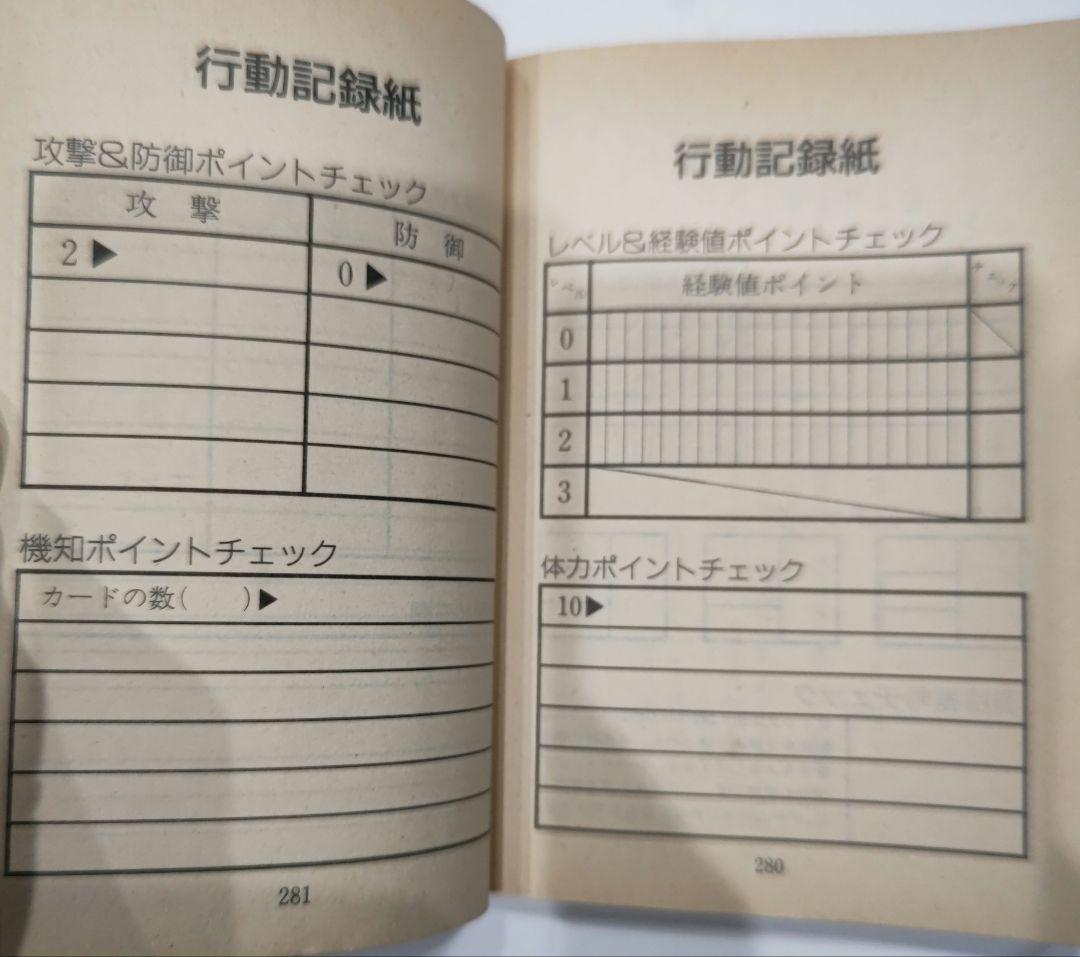 行動記録紙
レベル&経験値ポイントチェック
レベル 経験値ポイント チェック
0
1
2
3
体力ポイントチェック
10▶
280
行動記録紙
攻撃&防御ポイントチェック
攻 撃 防 御
2▶ 0▶
機知ポイントチェック
カードの数( )▶
281